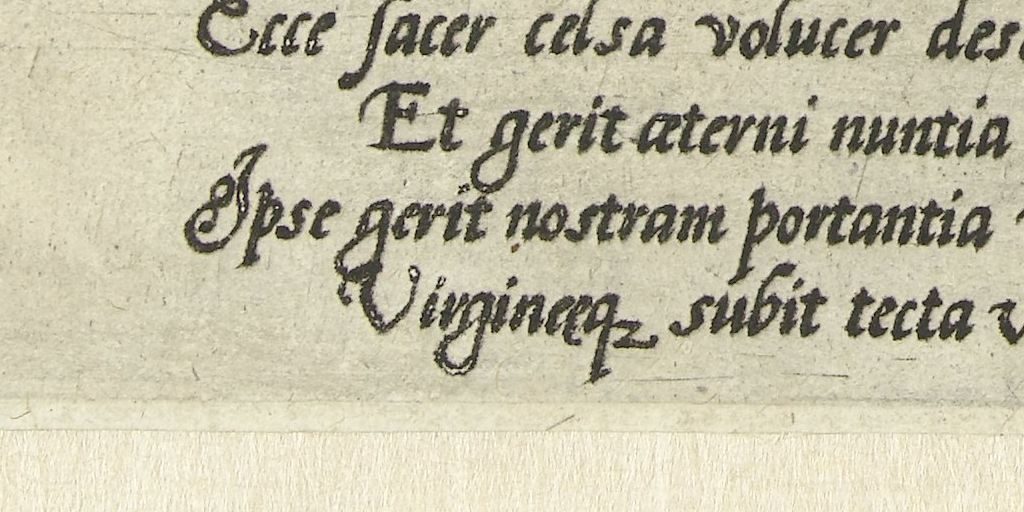 Ecce sacer celsa volucer des
Et gerit æterni nuntia
Ipse gerit nostram portantia
Virgineęq; subit tecta